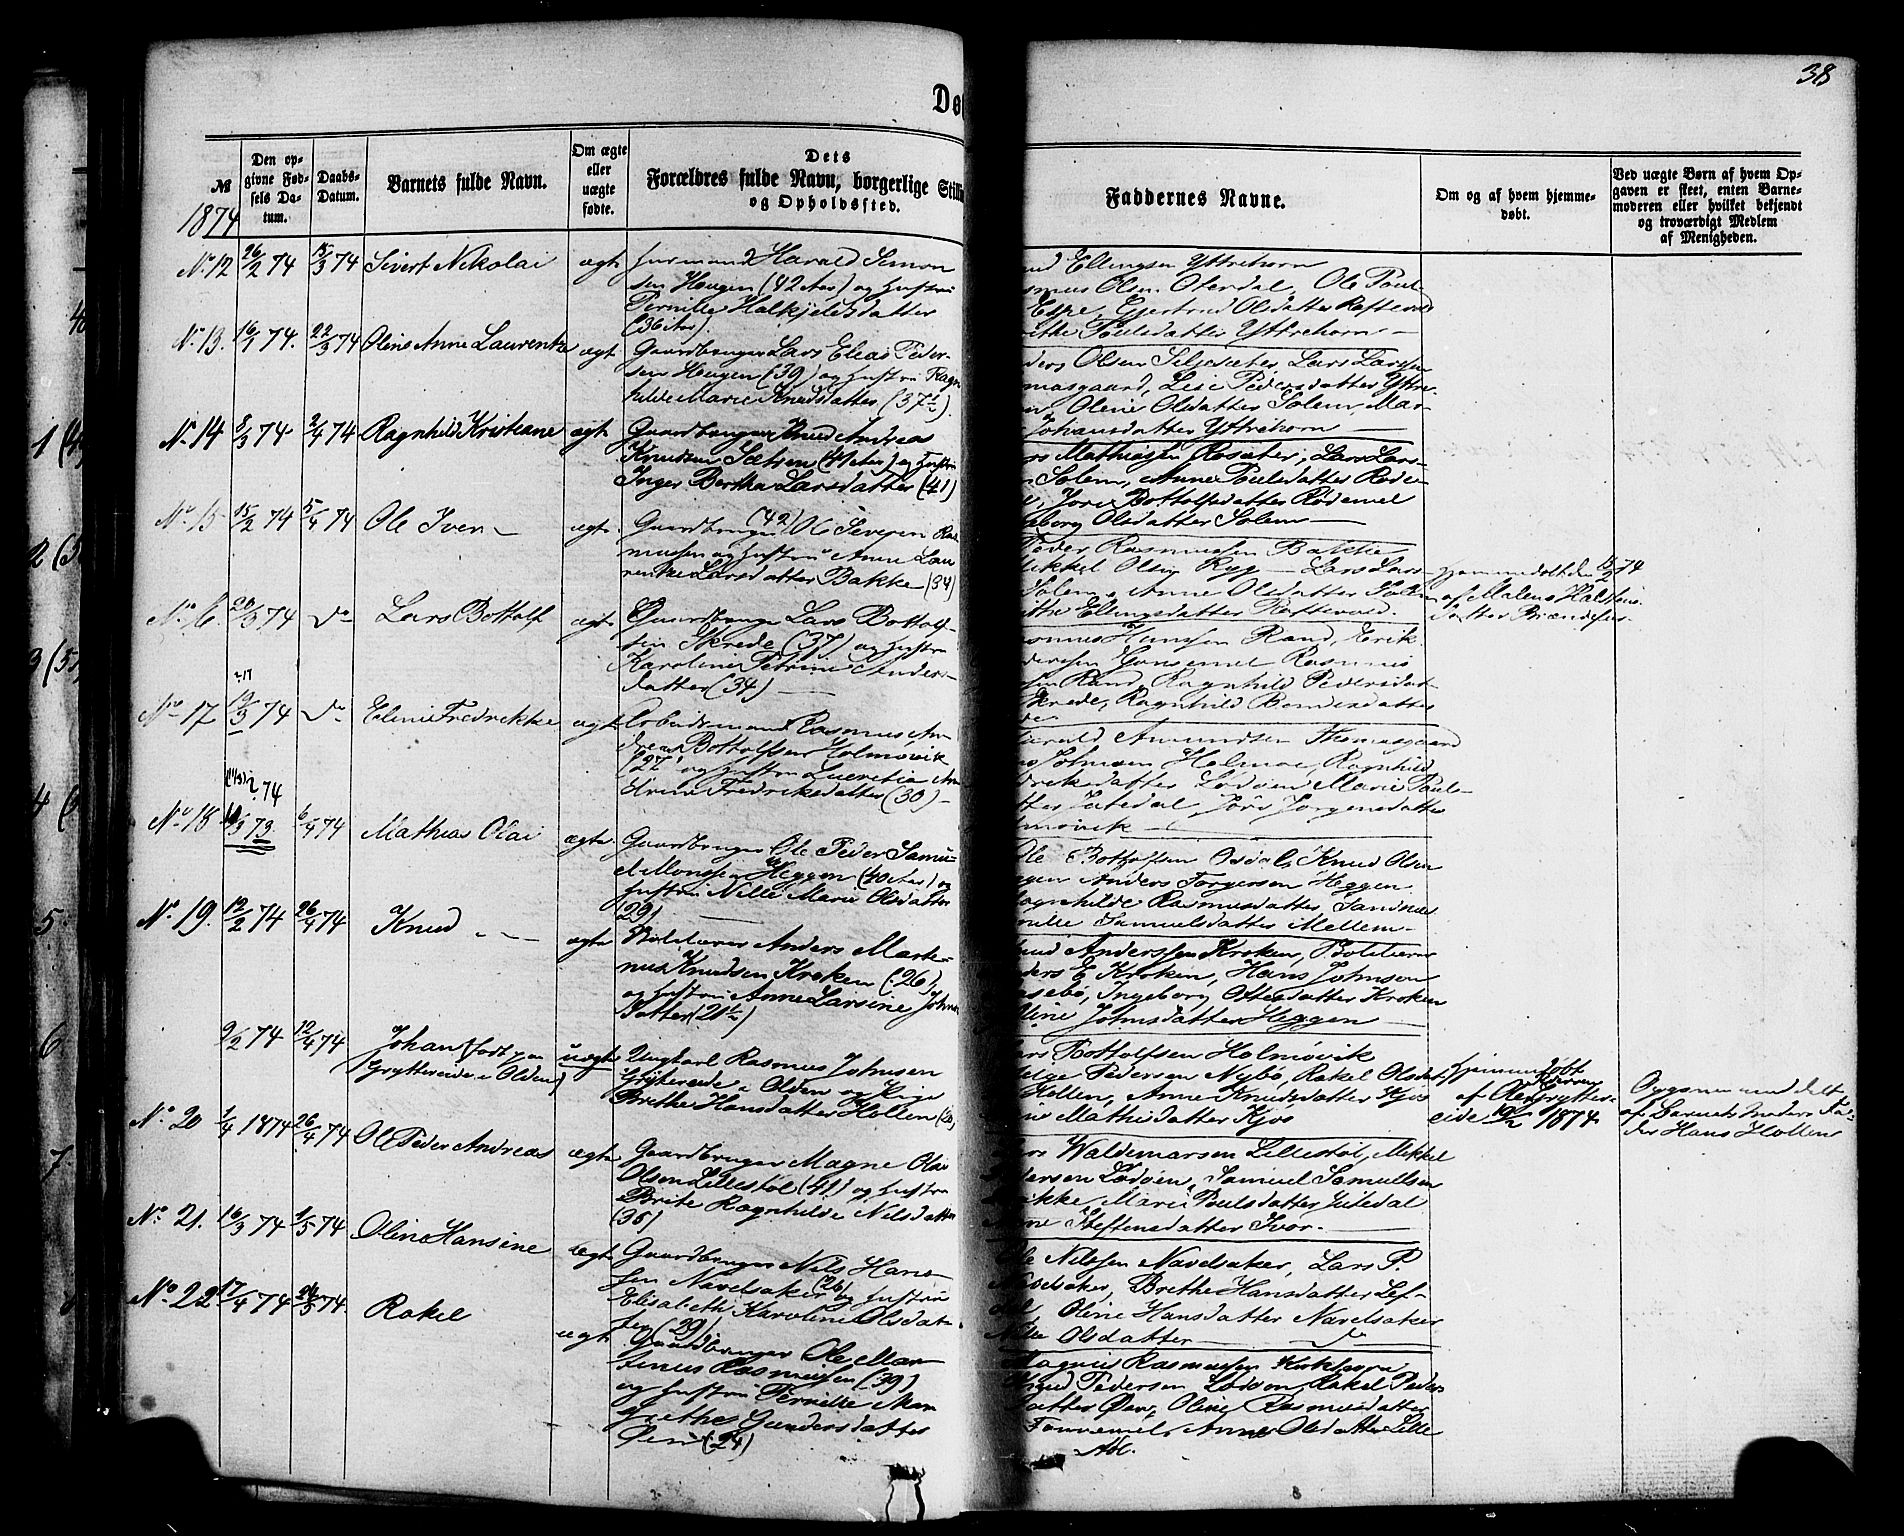 38
Dø
№
1874
Den op-
givne Fød-
sels Da-
tum.
Daabs-
Datum.
Barnets fulde Navn.
Om ægte
eller
uægte
fødte.
Dets
Forældres fulde Navn, borgerlige Still
og Opholdssted.
Faddernes Navne.
Om og af hvem hjemme-
døbt.
Ved uægte Børn af hvem Op-
gaven er skeet, enten Barne-
moderen eller hvilket bekjendt
og troværdigt Medlem
af Menigheden.
No 12 26/2 74 15/3 74 Sivert Nikolai ægte Huusmand Harald Simon
sen Hougen (42 Aar) og Hustru
Pernille Halkjeldsdatter
(36 Aar).
nd Ellingsen Yttrehorn
smus Olsen Oterdal, Ole Poul
Espe, Gjertrud Olsdatter Raftevold
ethe Poulsdatter Yttrehorn
No 13. 16/1 74. 22/3 74 Oline Anne Laurentze ægte Gaardbruger Lars Elias Peder-
sen Hougen (39) og Hustru Ragn
hilde Marie Knudsdatter (37½).
ders Olsen Seljesæter, Lars Larsen
masgaard, Lise Pedersdatter Yttre
Oline Olsdatter Solem, Mar-
Johansdatter Yttrehorn
No 14 8/3 74 3/4 74 Ragnhild Kristiane ægte Gaardbruger Knud Andreas
Knudsen Sætren (41 Aar) og Hustru
Inger Bertha Larsdatter (41)
rs Mathiasen Rosæter, Lars Lars-
Solem, Anne Poulsdatter Røde-
Jori Bottolfsdatter Rødemel
geborg Olsdatter Solem
No 15 15/2 74 5/4 74 Ole Iver ægte Gaardbruger (42) Ole Severin Ras
mussen og Hustru Anne Lau
rentze Larsdatter Bakke (34)
Peder Rasmussen Bakke
ikkel Olsen Ryg Lars Lars-
Solem, Anne Olsdatter Solem
ithe Ellingsdatter Raftevold.
Hjemmedøbt den 15/2 74
af Malene Halstens
datter Brændefur
No 16. 20/3 74 do Lars Bottolf ægte Gaardbruger Lars Bottolf-
sen Skrede (37) og Hustru
Karoline Petrine Anders-
datter (34)
smus Hanssen Rand, Erik
dersen Gausemel Rasmus
sen Rand, Ragnhild Pedersdat-
krede, Ragnhild Bendixdatter
No 17 19/3 74 do Eline Fredrikke ægte Arbeidsmand Rasmus An-
dreas Bottolfsen Holmøvik
(27) og Hustru Lucretia Ann
Strine Fredriksdatter (30)
Harald Amundsen Thomasgaard
Johnsen Holmøe, Ragnhild
driksdatter Lødøen Marie Pouls-
tter Jytedal Jóri Jørgensdatter
lmøvik
No 18 73 6/4 74 Mathias Olai ægte Gaardbruger Ole Peder Samu-
el Monssen Heggen (40 Aar) og
Hustru Nille Marie Olsdatter
(29)
Ole Bottolfsen Osdal, Knud Olsen
ggen Anders Torgersen Heggen
Ragnhilde Rasmusdatter Sandnes
nille Samuelsdatter Mellem
No 19. 12/2 74 26/4 74 Knud ægte Anders Marti-
nus Knudsen Kroken (26)
og Hustru Anne Larsine Johns
datter (21½)
nud Anderssen Kroken,
ders E Kroken, Hans Johnson
sebø, Ingeborg Ottesdatter Kroken
Oline Johnsdatter Heggen
9/2 74 12/4 74 Johan (født paa
Gryttereide i Olden) uægte Ungkarl Rasmus Johnsen
Gryttereide i Olden og Pige
Brithe Hansdatter Hollen
ers Bottolfsen Holmøvik
elge Pedersen Nybø, Rakel Olsdat
Hollen, Anne Knudsdatter Kjos
Mathisdatter Kjos
Hjemmedøbt
af Ole Grytter-
eide 1874
Opgaven meddelt
af Barnets Moders Fa-
der Hans Hollen
No 20 1/4 1874 26/4 74 Ole Peder Andreas ægte Gaardbruger Magne Olai
Olsen Lillestøl (41) og Hustru
Brite Ragnhilde Nilsdatter
(36)
ers Waldemarsen Lillestøl, Mikkel
dersen Lødøen, Samuel Samuelsen
Marie Poulsdatter Jytedal
Steffensdatter Svor
No 21. 16/3 74 1/5 74 Oline Hansine ægte Gaardbruger Nils Hans-
sen Navelsaker (26) og Hustru
Elisabeth Karoline Olsdat-
ter (29)
Ole Nilssen Navelsaker, Lars P.
Navelsaker, Brethe Hansdatter Lef-
dal Oline Hansdatter Navelsaker
Nille Olsdatter do
No 22 17/4 74 24/5 74. Rakel ægte Gaardbruger Ole Mar-
tinus Rasmussen (39)
og Hustru Pernille Mar
grethe Gundersdatter
Øen (24)
Magnus Rasmussen Kirkhorn
Pedersen Lødøen, Rakel Peders
datter Øen, Oline Rasmusdatter
Tonnemel, Anne Olsdatter Lille